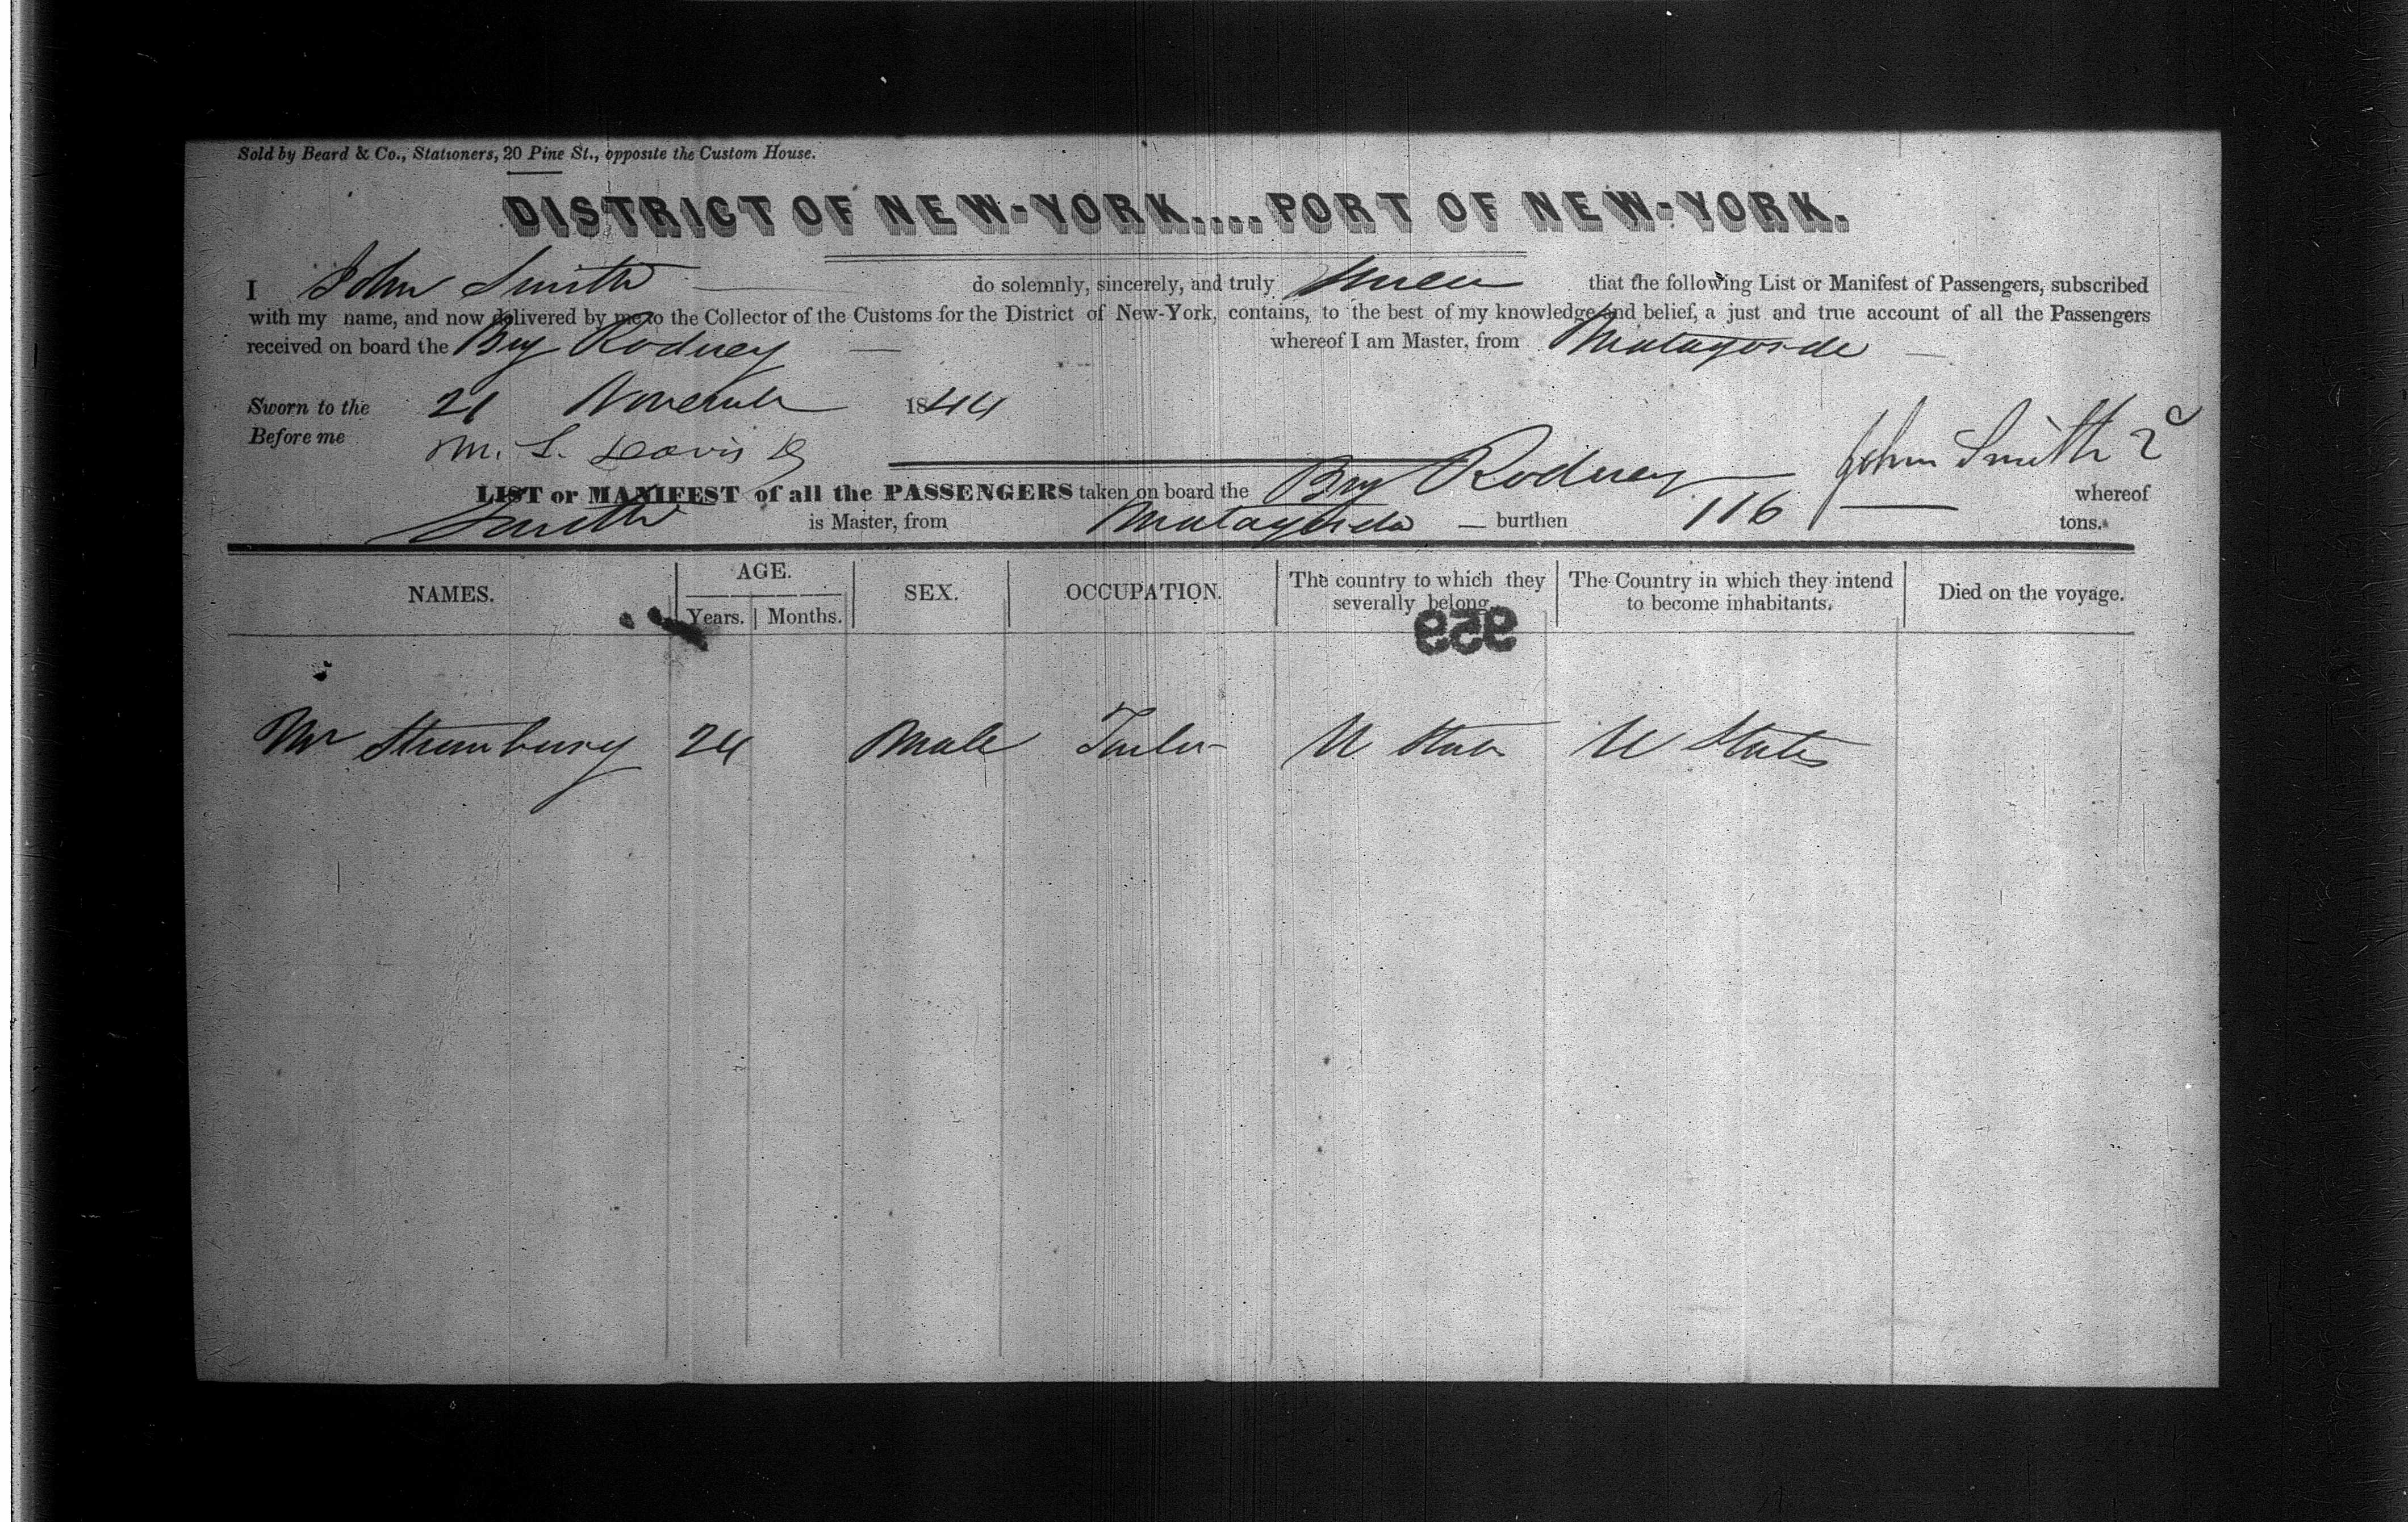 Sold by Beard & Co., Stationers, 20 Pine St., opposite the Custom House.
DISTRICT OF NEW-YORK....PORT OF NEW-YORK.
I John Smith do solemnly, sincerely, and truly swear that the following List or Manifest of Passengers, subscribed
with my name, and now delivered by me to the Collector of the Customs for the District of New-York, contains, to the best of my knowledge and belief, a just and true account of all the Passengers
received on board the Brig Rodney whereof I am Master, from Matagorda
Sworn to the 21 November 1844
Before me M. L. Davis
John Smith 2d
LIST or MANIFEST of all the PASSENGERS taken on board the Brig Rodney whereof
Smith is Master, from Matagorda burthen 116 tons.
NAMES. AGE. Years. Months. SEX. OCCUPATION. The country to which they severally belong. The Country in which they intend to become inhabitants. Died on the voyage.
959
Mr 24 Male U States U States